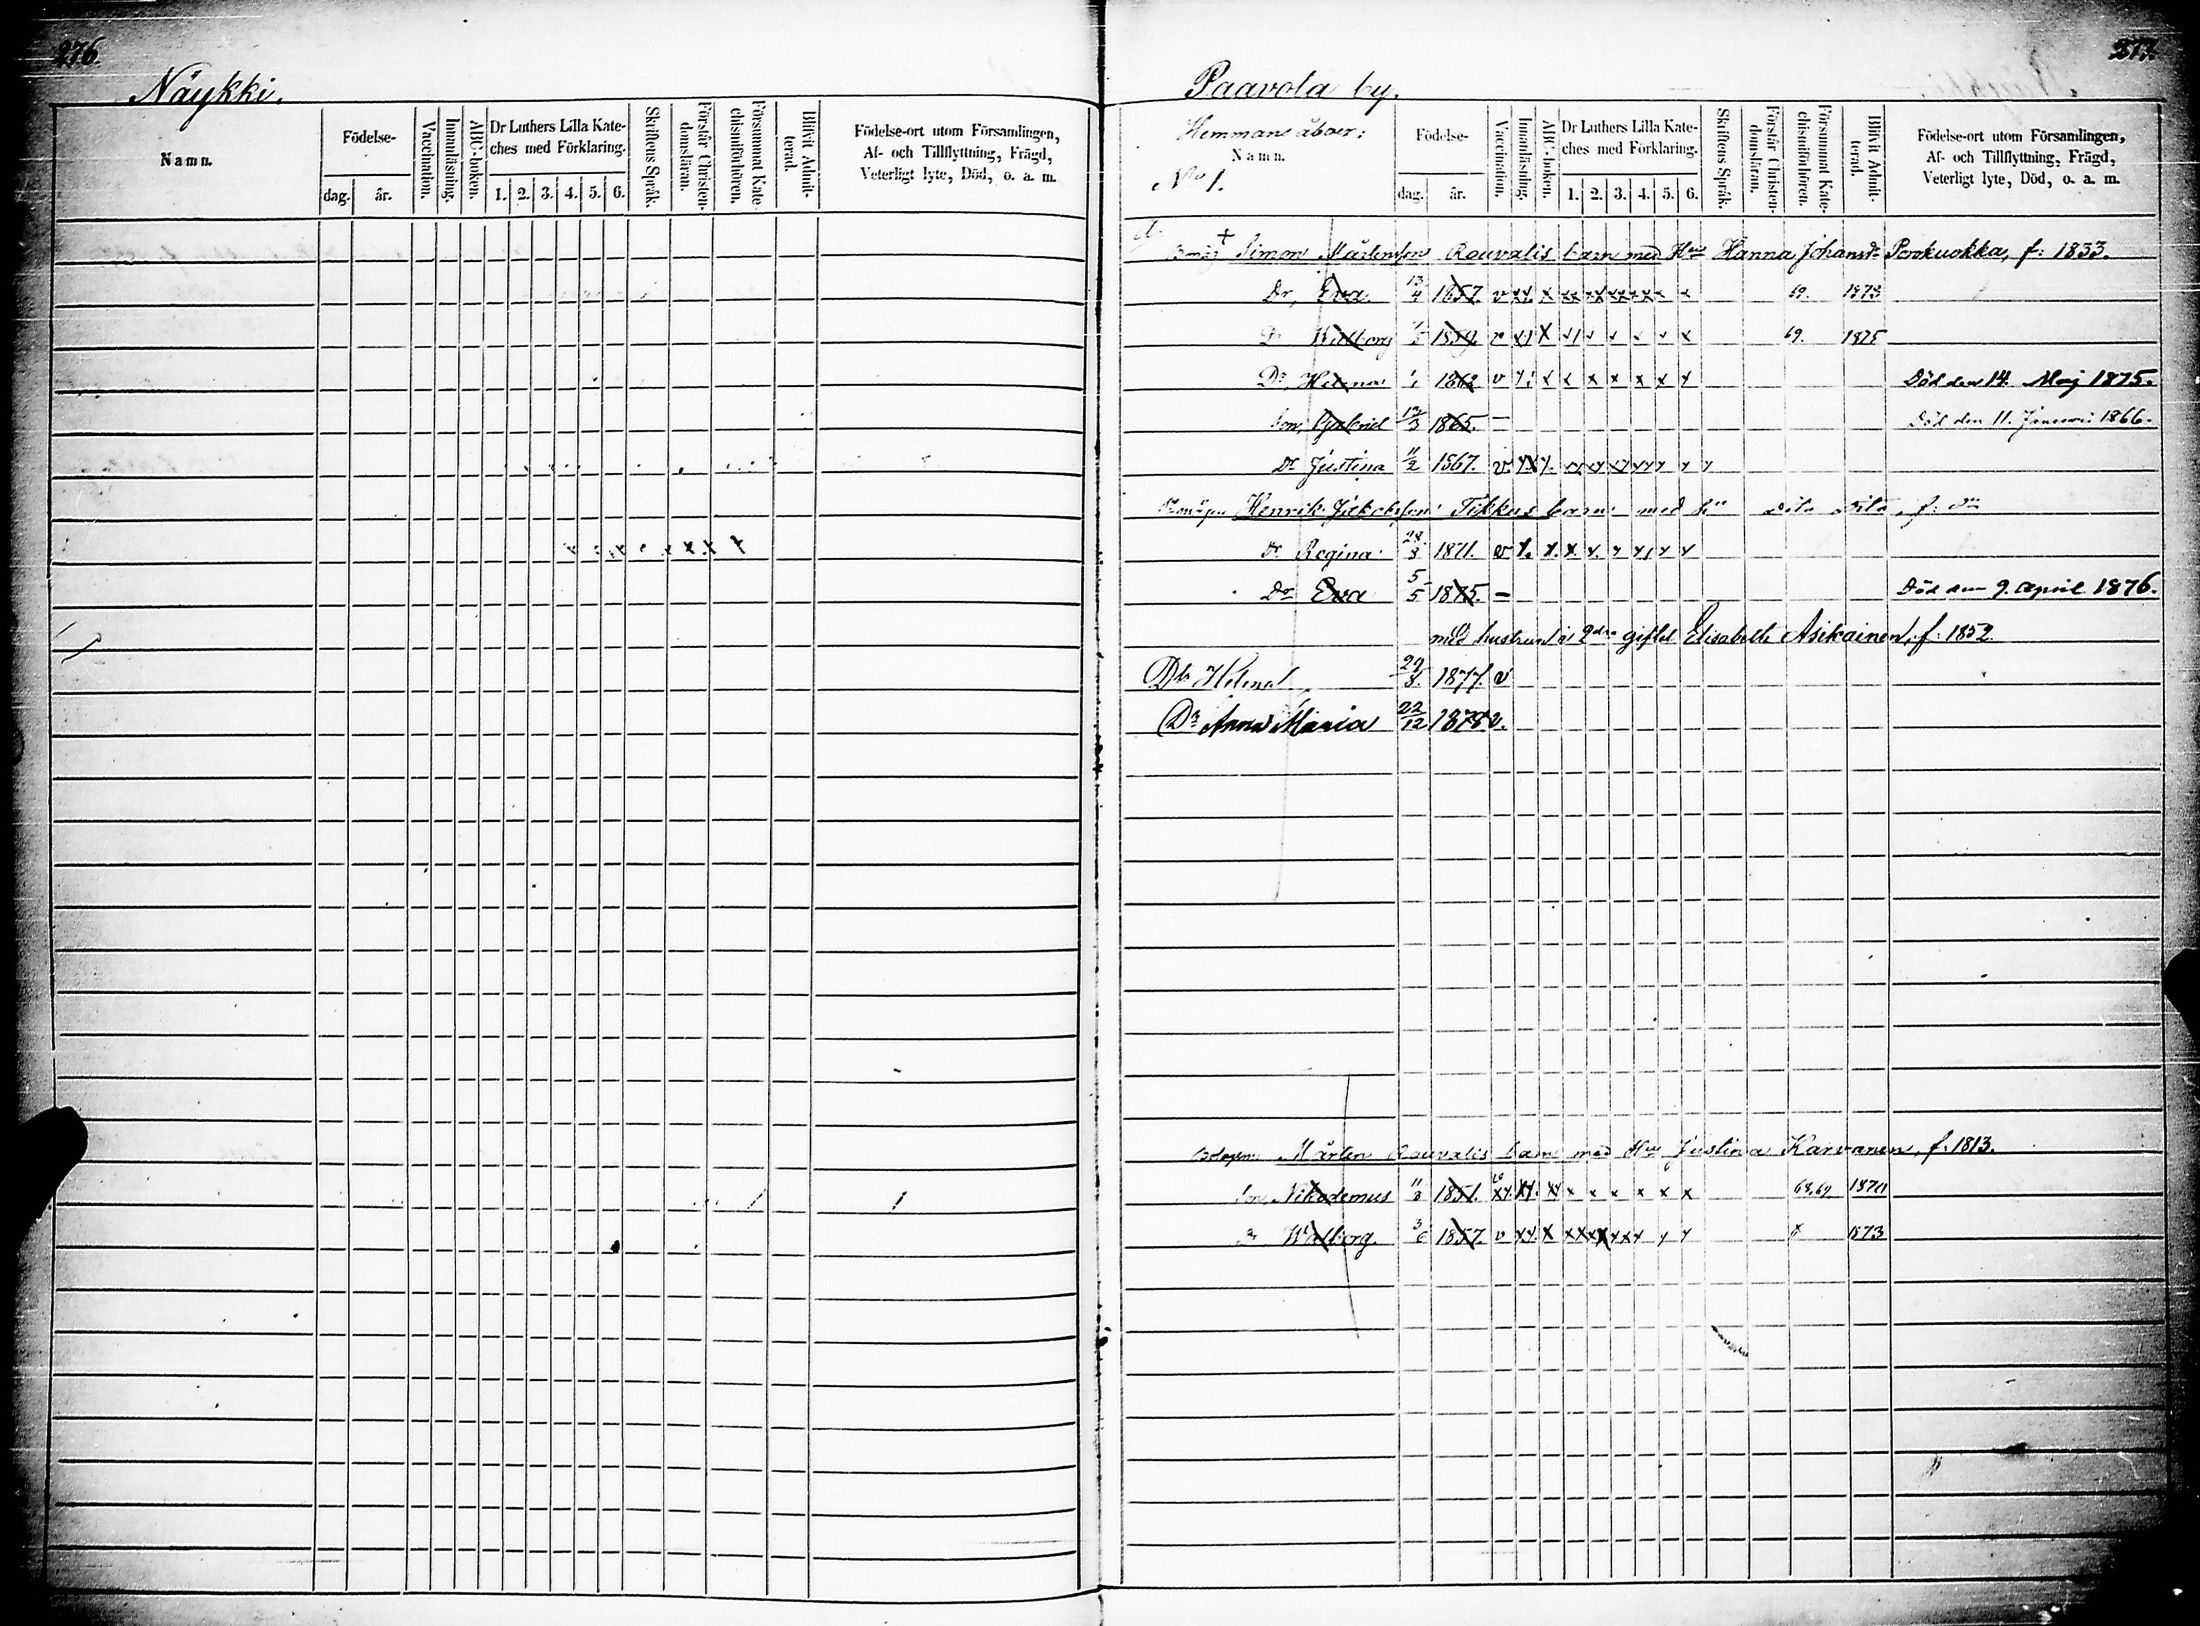 276.
Näykki.
Namn.
Födelse-
dag.
år.
Vaccination.
Innanläsning.
ABC-boken.
Dr Luthers Lilla Kate-
ches med Förklaring.
1. 2. 3. 4. 5. 6.
Skriftens Språk.
Förstår Christen-
domsläran.
Försummat Kate-
chismiförhören.
Blifvit Admit-
terad.
Födelse-ort utom Församlingen,
Af- och Tillflyttning, Frägd,
Veterligt lyte, Död, o. a. m.
277.
Paavola by.
Hemmans åboer:
Namn.
No 1.
Födelse-
dag.
år.
Vaccination.
Innanläsning.
ABC-boken.
Dr Luthers Lilla Kate-
ches med Förklaring.
1. 2. 3. 4. 5. 6.
Skriftens Språk.
Förstår Christen-
domsläran.
Försummat Kate-
chismiförhören.
Blifvit Admit-
terad.
Födelse-ort utom Församlingen,
Af- och Tillflyttning, Frägd,
Veterligt lyte, Död, o. a. m.
Simon Mårtensson Rouvalis barn med Hu Hanna Johansdr Porokuokka, f: 1833.
Dr, Eva 13/4 1857. v 69. 1873
Dr Walborg 1859. v 69. 1875
Dr, Helena 1862 v Död den 14. Maj 1875.
Son, Gabriel 13/3 1865. – Död den 11. Januari 1866.
Dr Justina 11/2 1867. v
Henrik Jakobsson Tikkas barn med Hu dito dito, f: do
Dr Regina 28/3 1871. v
Dr Eva 5/5 1875. – Död den 9. April 1876.
med hustrun i 2dra giftet Elisabeth Asikainen, f: 1852
Dr Helena 29/8. 1877. v
Dr Anna Maria 22/12 1878. v.
Mårten Rouvalis barn med Hu Justina Karvanen, f: 1813.
Son, Nikodemus 11/3 1851. 68,69 1870
Dr Walborg. 3/6 1857. v 1873